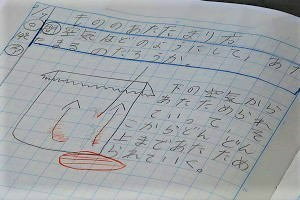 もののあたたまり方
問 空気はどのようにして、あた
まるのだろうか。
下の空気から
あたためられ
ていって、そ
こからどんどん
上まであたため
られていく。